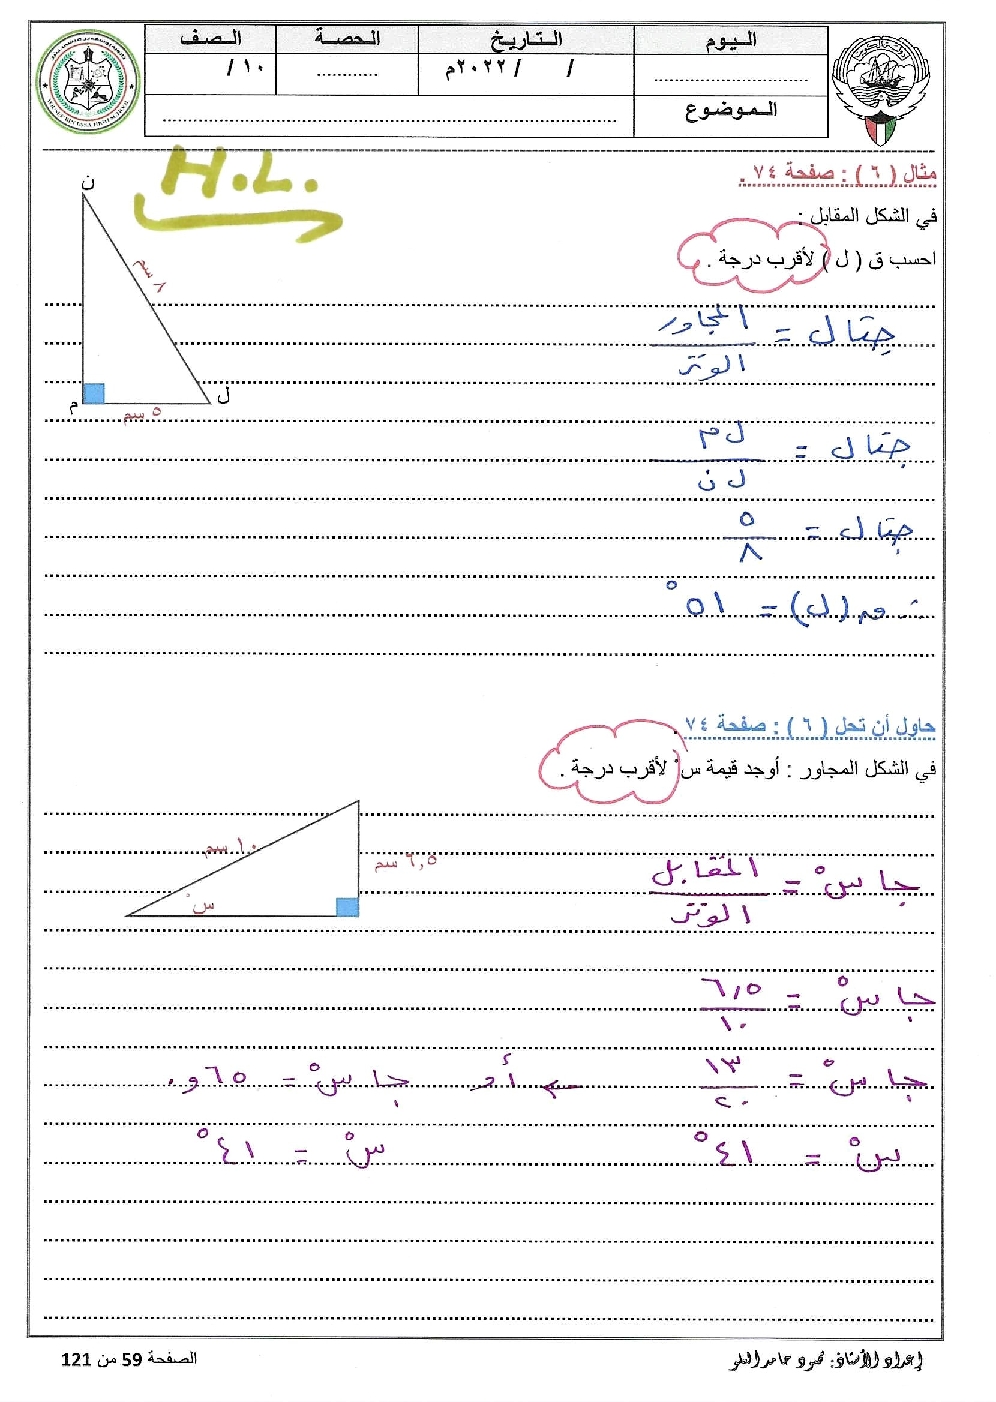 اليوم
التاريخ
الحصة
الصف
.....................
/ / ٢٠٢٢م
............
١٠/
الموضوع
.....................
H.L.
مثال ( ٦ ) : صفحة ٧٤ .
في الشكل المقابل :
احسب ق ( ل ) لأقرب درجة .
ن
٨ سم
م
ل
٥ سم
جتا ل = المجاور / الوتر
جتا ل = ل م / ل ن
جتا ل = ٥ / ٨
∴ ق (ل) = ٥١°
حاول أن تحل ( ٦ ) : صفحة ٧٤ .
في الشكل المجاور : أوجد قيمة س° لأقرب درجة .
١٠ سم
٦,٥ سم
س°
جا س° = المقابل / الوتر
جا س° = ٦,٥ / ١٠
جا س° = ١٣ / ٢٠ ← أو جا س° = ٦٥و٠
س° = ٤١° س° = ٤١°
إعداد الأستاذ:
الصفحة 59 من 121